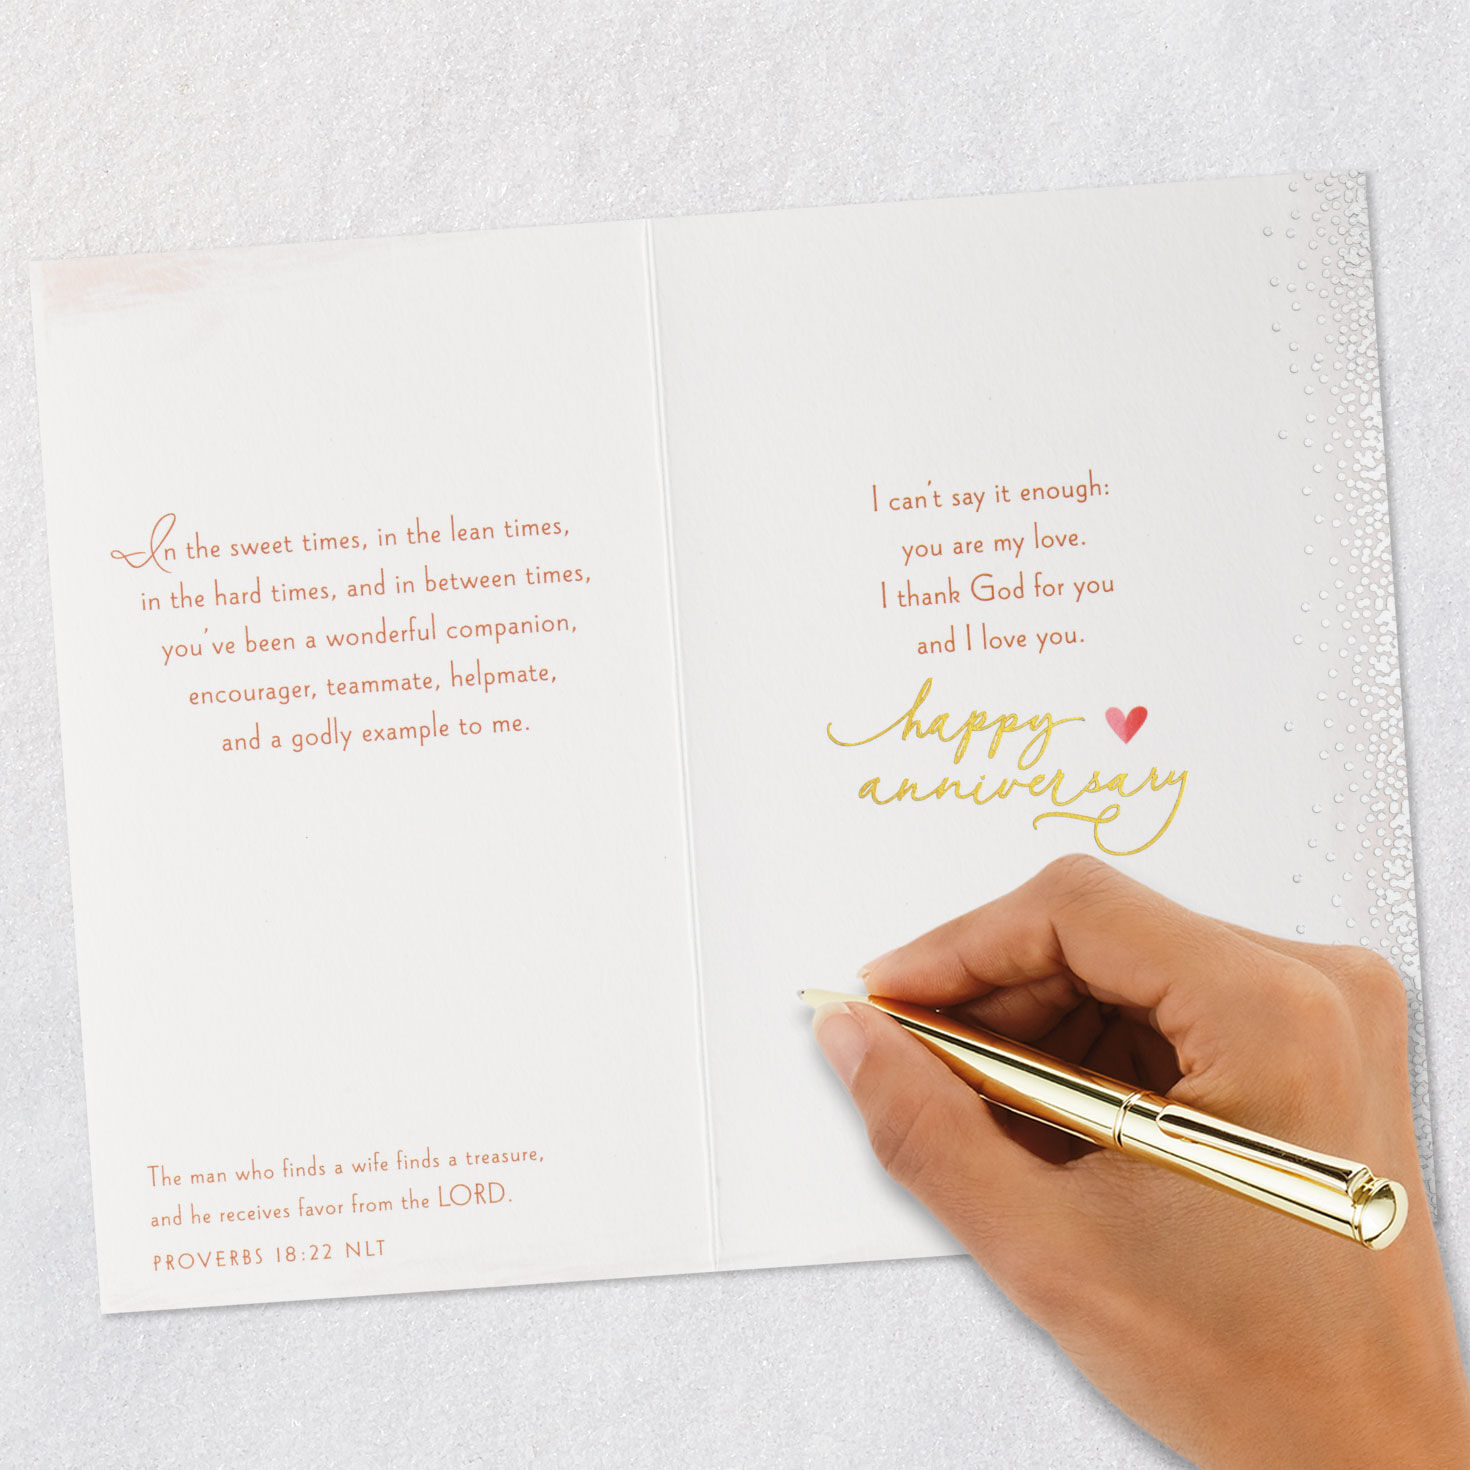 In the sweet times, in the lean times,
in the hard times, and in between times,
you've been a wonderful companion,
encourager, teammate, helpmate,
and a godly example to me.
The man who finds a wife finds a treasure,
and he receives favor from the LORD.
PROVERBS 18:22 NLT
I can't say it enough:
you are my love.
I thank God for you
and I love you.
happy
anniversary